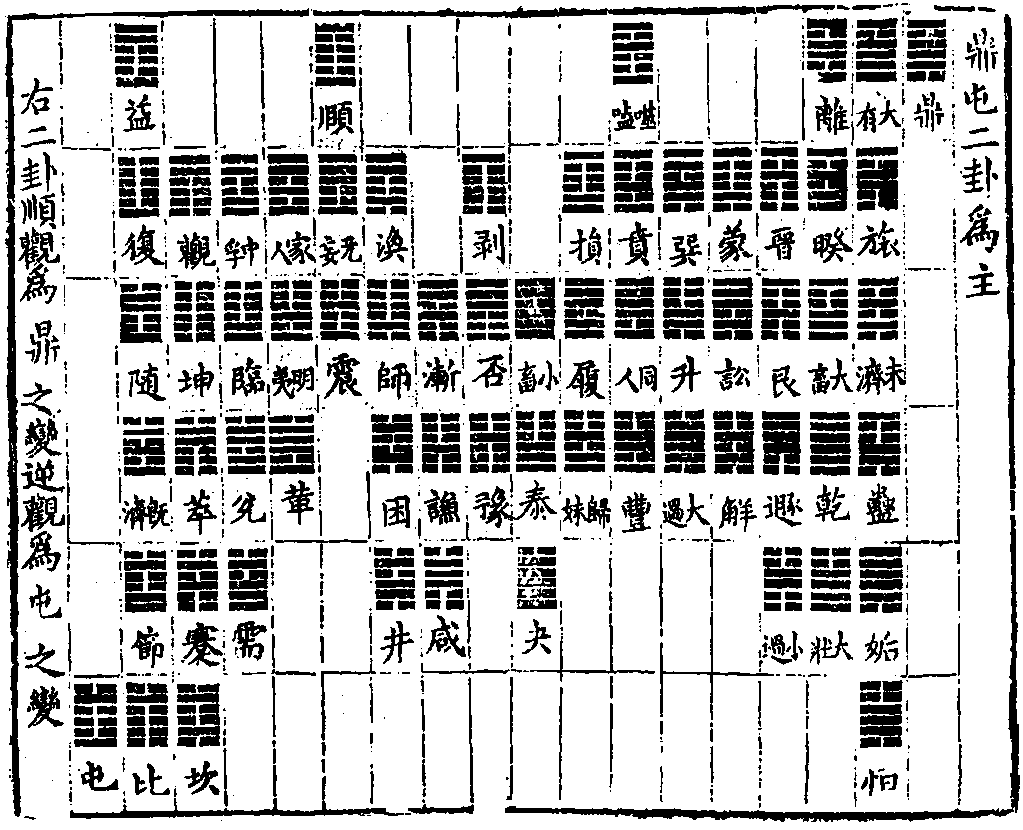 鼎屯二卦為主
鼎 大有 離 噬嗑 順 益
旅 睽 晉 蒙 巽 賁 損 剥 渙 无妄 家人 中孚 觀 復
未濟 大畜 艮 訟 升 同人 履 小畜 否 漸 師 震 明夷 臨 坤 随
蠱 乾 遯 解 大過 豐 歸妹 泰 豫 謙 困 革 兊 萃 旣濟
姤 大壯 小過 夬 咸 井 需 蹇 節
恒 坎 比 屯
右二卦順觀為鼎之變逆觀為屯之變